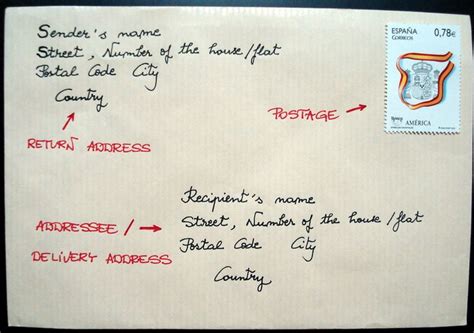 Sender's name
Street, Number of the house/flat
Postal Code City
Country
RETURN ADDRESS
POSTAGE
ESPAÑA
CORREOS
0,78€
AMÉRICA
Recipient's name
Street, Number of the house/flat
Postal Code City
Country
ADDRESSEE /
DELIVERY ADDRESS